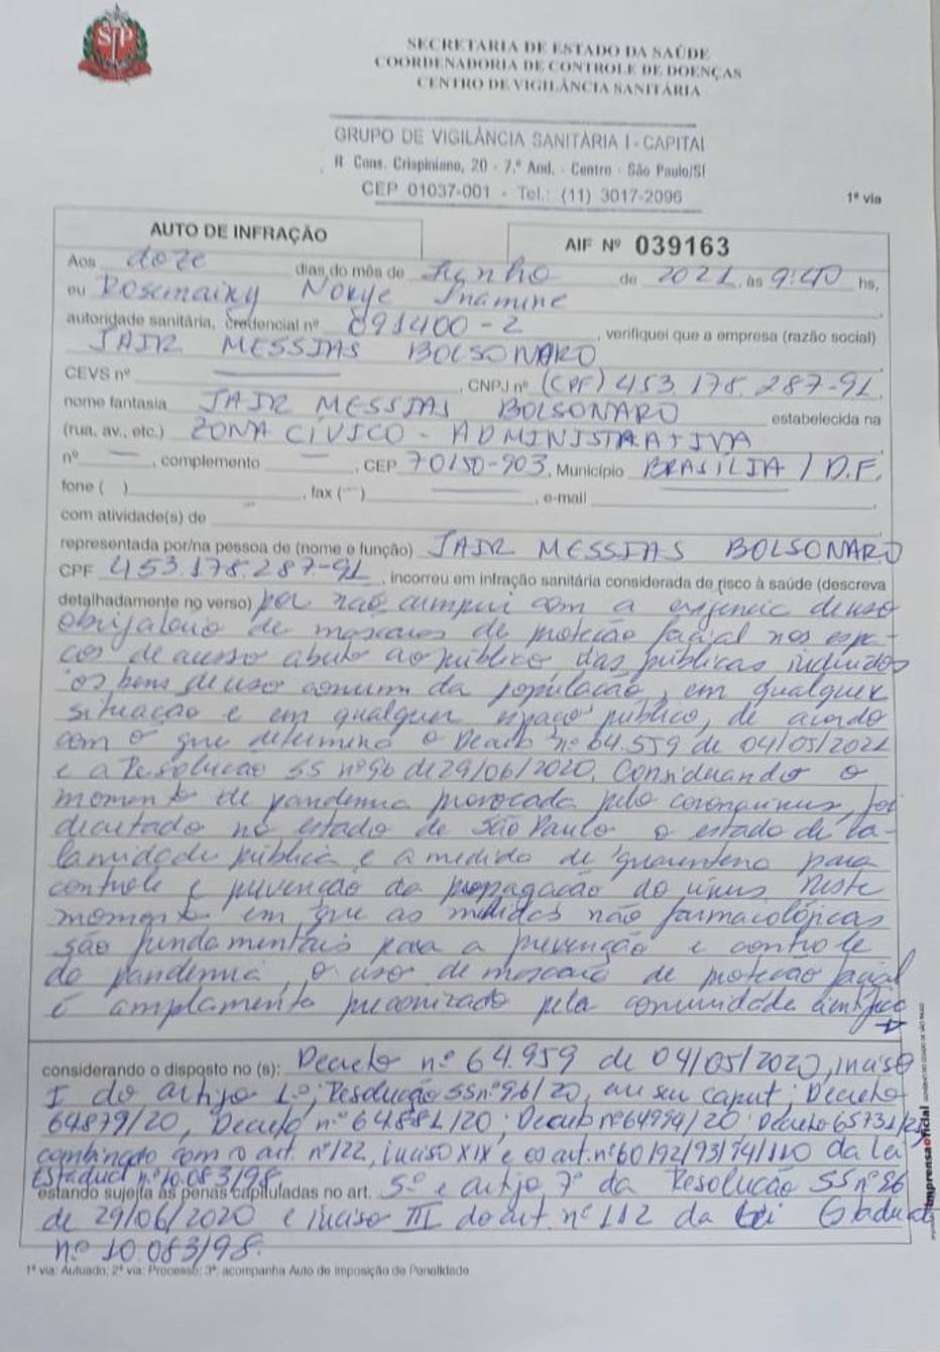 SP
SECRETARIA DE ESTADO DA SAÚDE
COORDENADORIA DE CONTROLE DE DOENÇAS
CENTRO DE VIGILÂNCIA SANITÁRIA
GRUPO DE VIGILÂNCIA SANITÁRIA I - CAPITAL
R. Cons. Crispiniano, 20 - 7.º And. - Centro - São Paulo/SP
CEP 01037-001 - Tel.: (11) 3017-2096
1ª via
AUTO DE INFRAÇÃO
AIF Nº 039163
Aos doze dias do mês de Junho de 2021, às 9:40 hs,
eu Rosemairy Norye Inamine
autoridade sanitária, credencial nº 091400-2, verifiquei que a empresa (razão social)
JAIR MESSIAS BOLSONARO
CEVS nº , CNPJ nº (CPF) 453.178.287-91,
nome fantasia JAIR MESSIAS BOLSONARO estabelecida na
(rua, av., etc.) ZONA CÍVICO - ADMINISTRATIVA
nº , complemento , CEP 70150-903, Município BRASÍLIA / D.F.
fone ( ) , fax ( ) , e-mail
com atividade(s) de
representada por/na pessoa de (nome e função) JAIR MESSIAS BOLSONARO
CPF 453.178.287-91, incorreu em infração sanitária considerada de risco à saúde (descreva
detalhadamente no verso) por não cumprir com a exigencia de uso
obrigatorio de mascaras de proteção facial nos espa-
ços de acesso aberto ao público, das públicas incluidos
os bens de uso comum da população, em qualquer
situação e em qualquer espaço público, de acordo
com o que determina o Decreto nº 64.559 de 04/05/2021
e a Resolucao SS nº 96 de 29/06/2020. Considerando o
momento de pandemia provocada pelo coronavirus, foi
decretado no estado de São Paulo o estado de ca-
lamidade pública e a medida de quarentena para
controle e prevenção da propagação do virus. Neste
momento em que as medidas não farmacológicas
são fundamentais para a prevenção e controle
da pandemia, o uso de mascara de proteção facial
é amplamente preconizado pela comunidade cientifica
considerando o disposto no (s): Decreto nº 64.959 de 04/05/2020, inciso
I do artigo 1º; Resolução SS nº 96/20, em seu caput; Decreto
64879/20, Decreto nº 64.881/20; Decreto nº 64994/20; Decreto 65731/21
combinado com o art. nº 122, inciso XIX e os art. nº 60/92/93/94/110 da Lei
Estadual nº 10.083/98.
estando sujeita às penas capituladas no art. 5º e artigo 7º da Resolução SS nº 96
de 29/06/2020 e inciso III do art. nº 112 da Lei Estadual
nº 10.083/98.
1ª via: Autuado; 2ª via: Processo; 3ª: acompanha Auto de Imposição de Penalidade
imprensaoficial